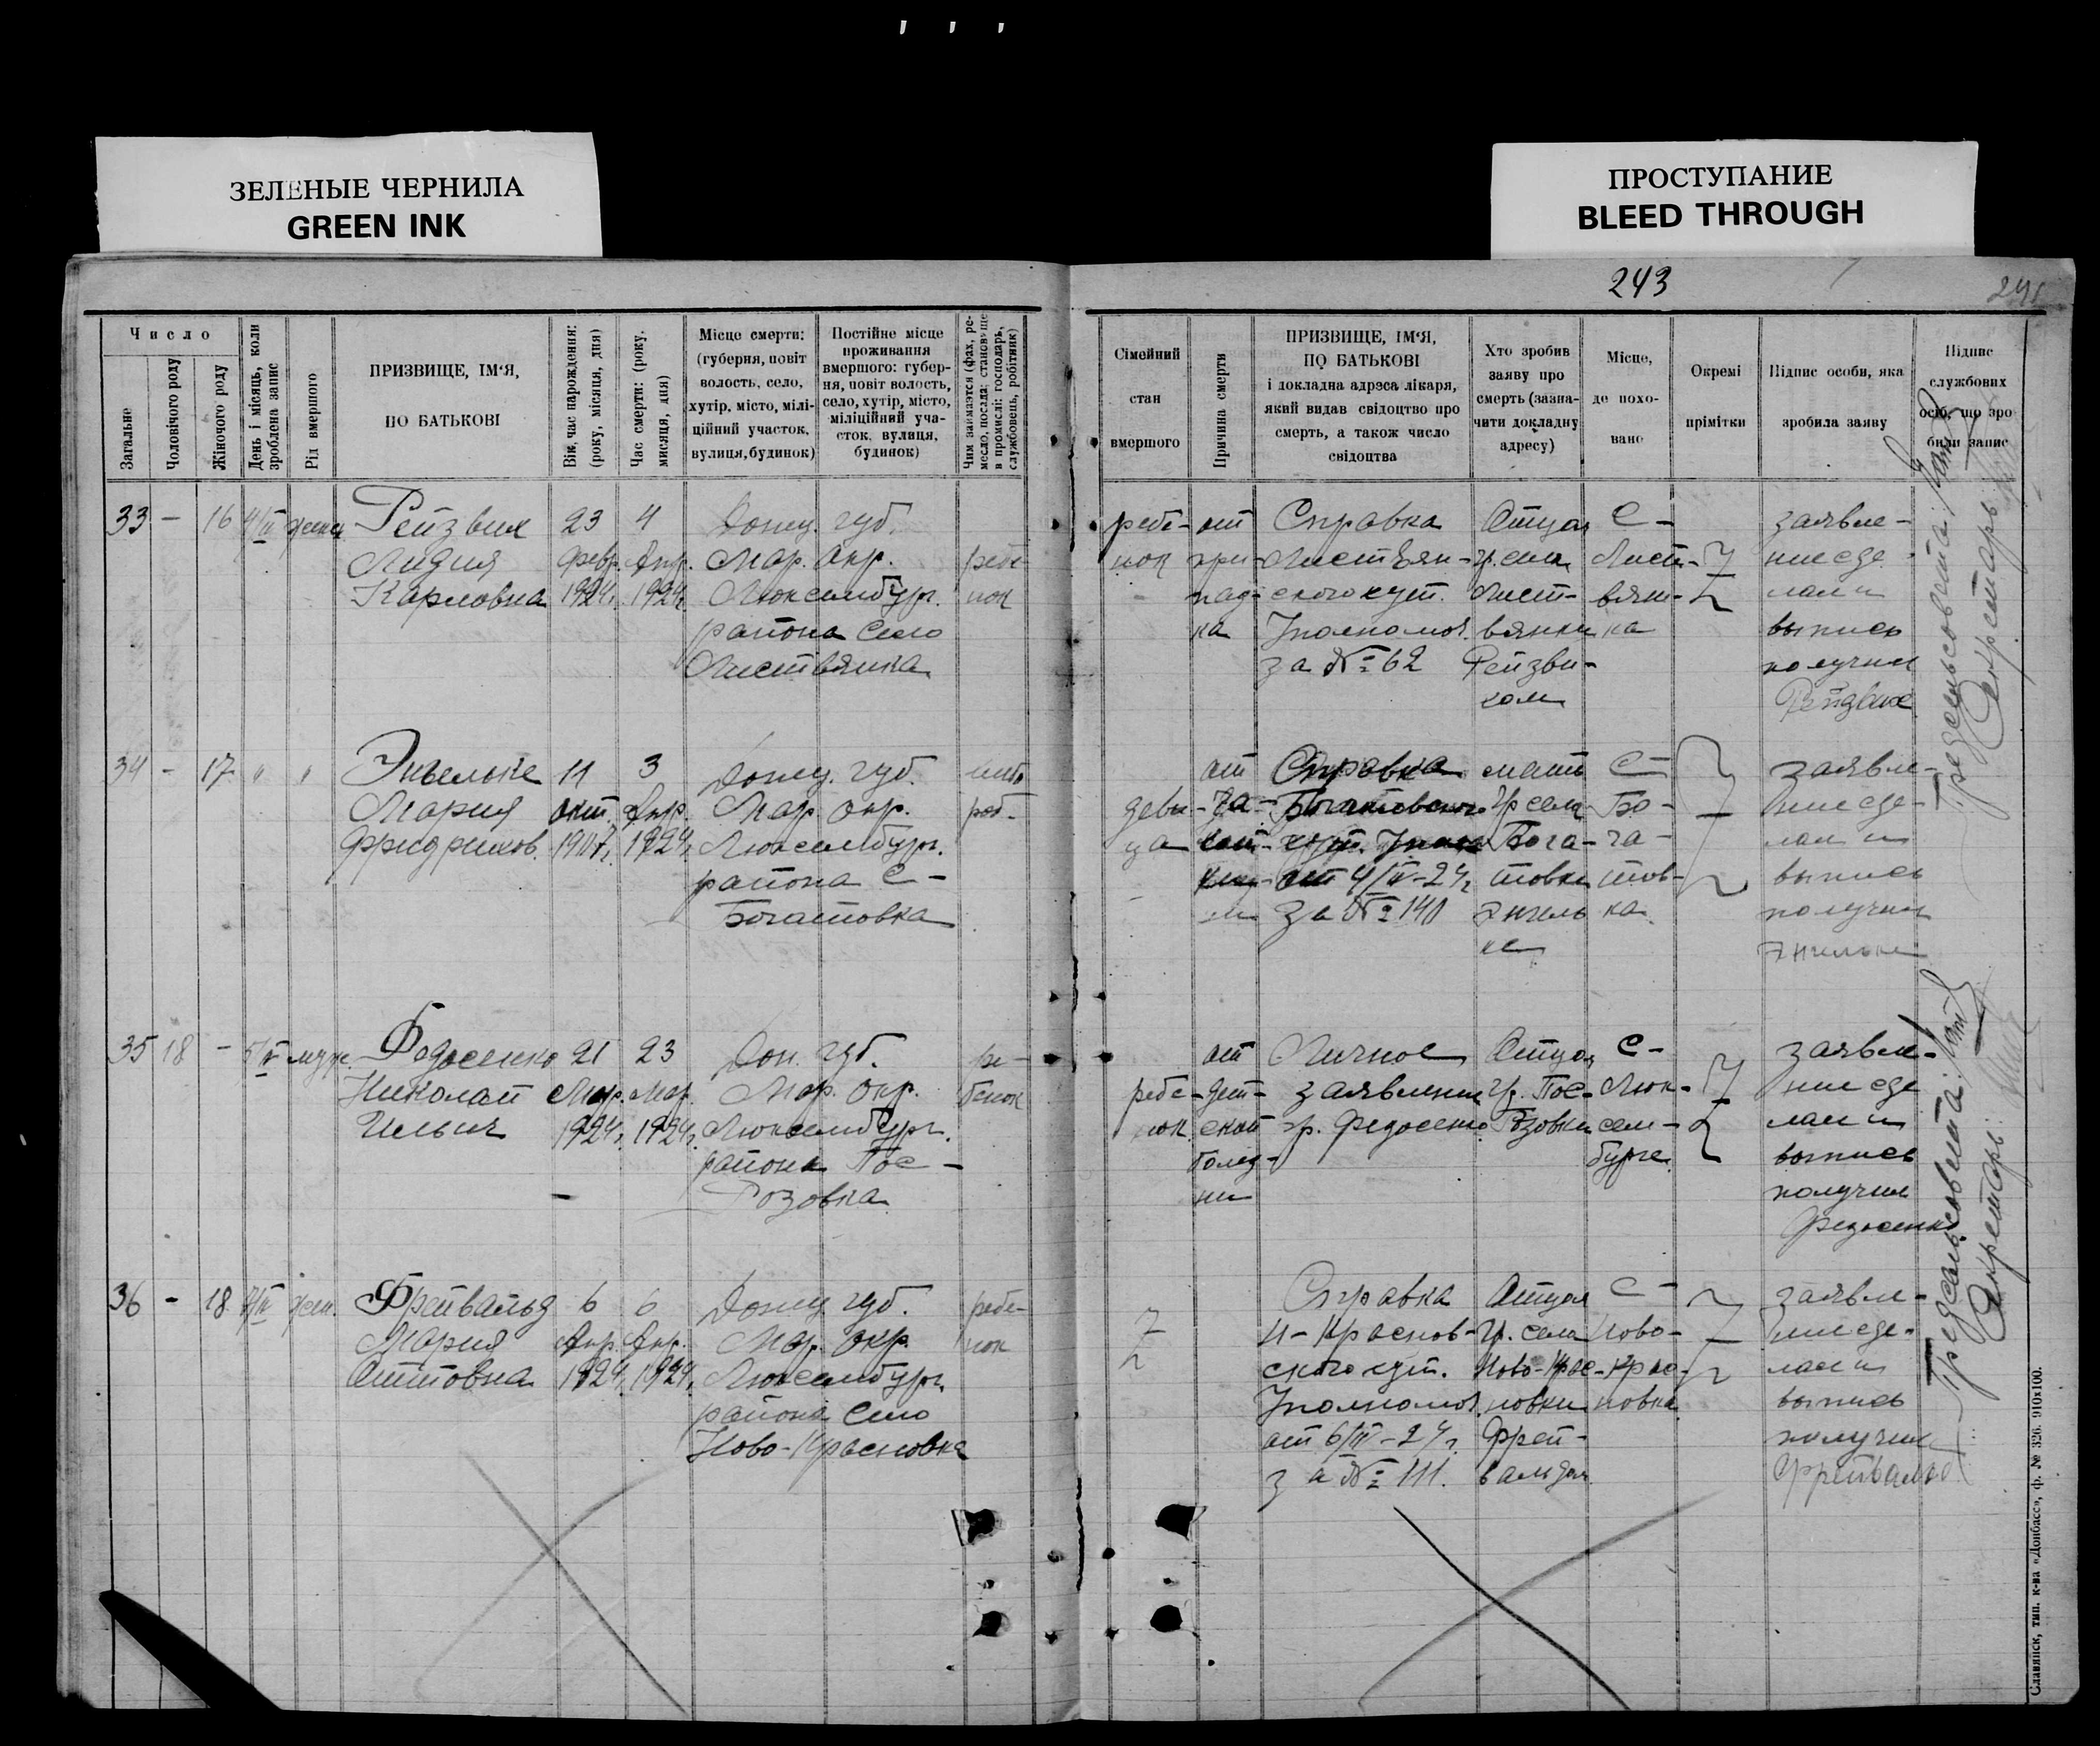 ЗЕЛЕНЫЕ ЧЕРНИЛА
GREEN INK
ПРОСТУПАНИЕ
BLEED THROUGH
243
Число
Загальне
Чоловічого роду
Жіночого роду
День і місяць, коли
зроблена запис
Рід вмершого
ПРИЗВИЩЕ, ІМ'Я,
ПО БАТЬКОВІ
Вік, час народження:
(року, місяця, дня)
Час смерти: (року,
місяця, дня)
Місце смерти:
(губерня, повіт
волость, село,
хутір, місто, мілі-
ційний участок,
вулиця, будинок)
Постійне місце
проживання
вмершого: губер-
ня, повіт волость,
село, хутір, місто,
міліційний уча-
сток, вулиця,
будинок)
Чим займается (фах, ре-
месло, посада: становище
в промислі: господарь,
службовець, робітник)
Сімейний
стан
вмершого
Причина смерти
ПРИЗВИЩЕ, ІМ'Я,
ПО БАТЬКОВІ
і докладна адреса лікаря,
який видав свідоцтво про
смерть, а також число
свідоцтва
Хто зробив
заяву про
смерть (зазна-
чити докладну
адресу)
Місце,
де похо-
вано
Окремі
прімітки
Підпис особи, яка
зробила заяву
Підпис
службових
осіб, що зро
били запис
33 - 16 4/IV женск
Рейзвих
Лидия
Карловна
23
Февр.
1924г.
4
Апр.
1924г
Донец. губ.
Мар. окр.
Люксембург.
района село
Листвянка
ребе
нок
ребе-
нок
от
при-
пад-
ка
Справка
Листвян-
ского кут.
Уполномоч.
за № 62
Отцом
гр. села
Лист-
вянки
Рейзви-
хом
С-
Лист-
вян-
ка
заявле-
ние сде
лал и
выпись
получил
Рейзвих
34 - 17 " "
Энгельке
Мария
Фридрихов.
11
окт.
1907г.
3
Апр.
1924г.
Донец. губ.
Мар. окр.
Люксембург.
района С-
Богатовка
деви-
ца
от
Справка
Богатовского
от 4/IV-24г
за № 140
мать
гр села
Бога-
товки
Энгель
ке
С-
Бо-
га-
тов-
ка
заявле-
ние сде-
лал и
выпись
получил
Энгельке
35 18 - 5/IV муж.
Федосенко
Николай
Ильич
21
Мар.
1924г.
23
Мар.
1924г.
Дон. губ.
Мар. окр.
Люксембург.
района Пос-
Розовка
ре-
бенок
ребе-
нок
от
дет-
ской
болез-
ни
Личное
заявление
гр. Федосенко
Отцом
гр. Пос-
Розовки
С-
Люк-
сем-
бурге
заявле-
ние сде
лал и
выпись
получил
Федосенко
36 - 18 7/IV жен.
Фрейвальд
Мария
Оттовна
6
Апр.
1924.
6
Апр.
1924г.
Донец. губ.
Мар. окр.
Люксембург.
района село
Ново-Красновка
ребе-
нок
Справка
Н-Краснов-
ского кут.
Уполномоч.
от 6/IV-24г.
за № 111.
Отцом
гр. села
Ново-Крас-
новки
Фрей-
вальдом
С-
Ново-
Крас-
новка
заявле-
ние сде-
лал и
выпись
получил
Фрейвальд
Предсельсовета:
Секретарь:
Предсельсовета:
Секретарь:
Славянск, тип. к-ва «Донбасс», ф. № 326. 910х100.